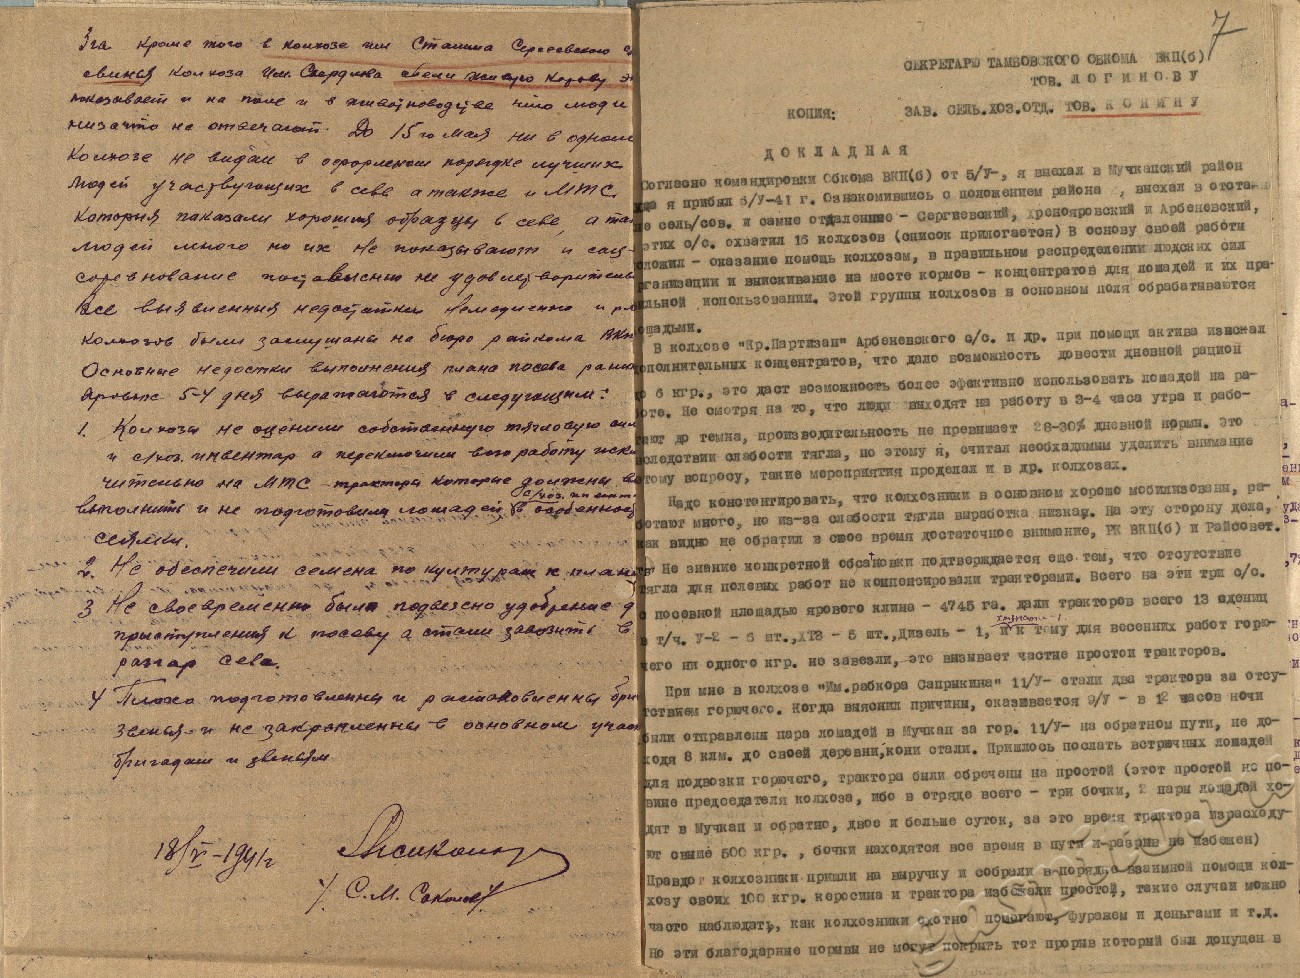 3га кроме того в колхозе им Сталина Сергеевского с
свинья колхоза им. Свердлова съели живую корову э
показывает и на поле и в животноводстве что люди
низачто не отвечают. До 15го мая ни в одном
Колхозе не видал в оформленом порядке лучших
людей участвующих в севе а также и МТС.
которыя паказали хорошия образцы в севе, а так
людей много но их не показывают и соц-
соревнование поставленно не удовлетворительно
Все выявленныя недостатки немедленно и р
колхозов были заслушаны на бюро райкома ВКп
Основные недостки выполнения плана посева ранних
яровых 5-4 дня выражаются в следующем:
1. Колхозы не оценили собственную тягловую сил
и с/хоз. инвентар а переключили всю работу искл
чительно на МТС - трактора которые должны в
выполнить и не подготовили лошадей с/хоз. инвент в особенност
сеялки.
2. Не обеспечили семена по културам к плану
3 Не своевременно было подвезено удобрение д
приступления к посеву а стали завозить в
разгар сева.
4 Плохо подготовленны и растановленны бриг
звенья и не закрепленны в основном участ
бригадам и звеньям
18/V-1941г
/ С.М. Соколов/
7
СЕКРЕТАРЮ ТАМБОВСКОГО ОБКОМА ВКП(б)
ТОВ. ЛОГИНОВУ
КОПИЯ: ЗАВ. СЕЛЬ.ХОЗ.ОТД. ТОВ. КОНИНУ
ДОКЛАДНАЯ
Согласно командировки Обкома ВКП(б) от 5/У-, я выехал в Мучкапский район
куда я прибыл 6/У-41 г. Ознакомившись с положением района , выехал в отстаю-
ие сель/сов. и самые отдаленные - Сергиевский, Хреноярсвский и Арбеневский,
этих с/с. охватил 16 колхозов (список прилогается) В основу своей работы
оложил - оказание помощь колхозам, в правильном распределении людских сил
рганизации и выискивание на месте кормов - концентратов для лошадей и их пра-
ильной использовании. Этой группы колхозов в основном поля обрабатываются
ошадьми.
В колхозе "Кр.Партизан" Арбеневского с/с. и др. при помощи актива изыскал
ополнительных концентратов, что дало возможность довести дневной рацион
до 6 кгр., это даст возможность более эфективно использовать лошадей на ра-
боте. Не смотря на то, что люди выходят на работу в 3-4 часа утра и рабо-
тают до темна, производительность не превышает 28-30% дневной нормы. Это
вследствии слабости тягла, по этому я, считал необходимым уделить внимание
этому вопросу, такие мероприятия проделал и в др. колхозах.
Надо констентировать, что колхозники в основном хорошо мобилизованы, ра-
ботают много, но из-за слабости тягла выработка низкая. На эту сторону дела,
как видно не обратил в свое время достаточное внимание, РК ВКП(б) и Райсовет.
Не знание конкретной обстановки подтверждается еще тем, что отсутствие
тягла для полевых работ не компенсировали тракторами. Всего на эти три с/с.
с посевной площадью ярового клина - 4745 га. дали тракторов всего 13 едениц
в т/ч. У-2 - 6 шт.,ХТЗ - 5 шт.,Дизель - 1, и к тому для весенних работ горю-
чего ни одного кгр. не завезли, это вызывает частые простои тракторов.
При мне в колхозе "Им.рабкора Сапрыкина" 11/У- стали два трактора за отсу-
тствием горючего. Когда выяснил причины, оказывается 9/У - в 12 часов ночи
были отправлены пара лошадей в Мучкап за гор. 11/У- на обратном пути, не до-
ходя 8 клм. до своей деревни,кони стали. Пришлось послать встрючных лошадей
для подвозки горючего, трактора были обречены на простой (этот простой не по-
вине председателя колхоза, ибо в отряде всего - три бочки, 2 пары лошадей хо-
дят в Мучкап и обратно, двое и больше суток, за это время трактора израсходу-
ют свыше 500 кгр. , бочки находятся все время в пути и разрыв не избежен)
Правдог колхозники пришли на выручку и собрали в порядке взаимной помощи кол-
хозу своих 100 кгр. керосина и трактора избежали простой, такие случаи можно
часто наблюдать, как колхозники охотно помогают, фуражем и деньгами и т.д.
Но эти благодарные порывы не могут покрыть тот прорыв который был допущен в